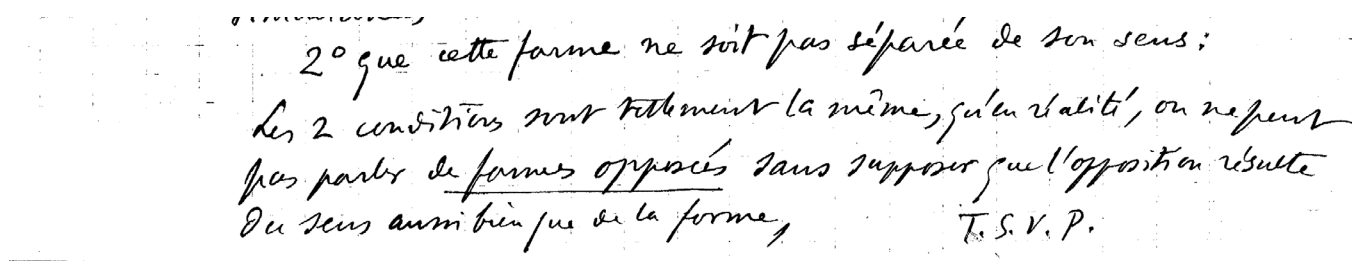 2° que cette forme ne soit pas séparée de son sens :
Les 2 conditions sont tellement la même, qu'en réalité, on ne peut
pas parler de formes opposées sans supposer que l'opposition résulte
du sens aussi bien que de la forme,
T.S.V.P.